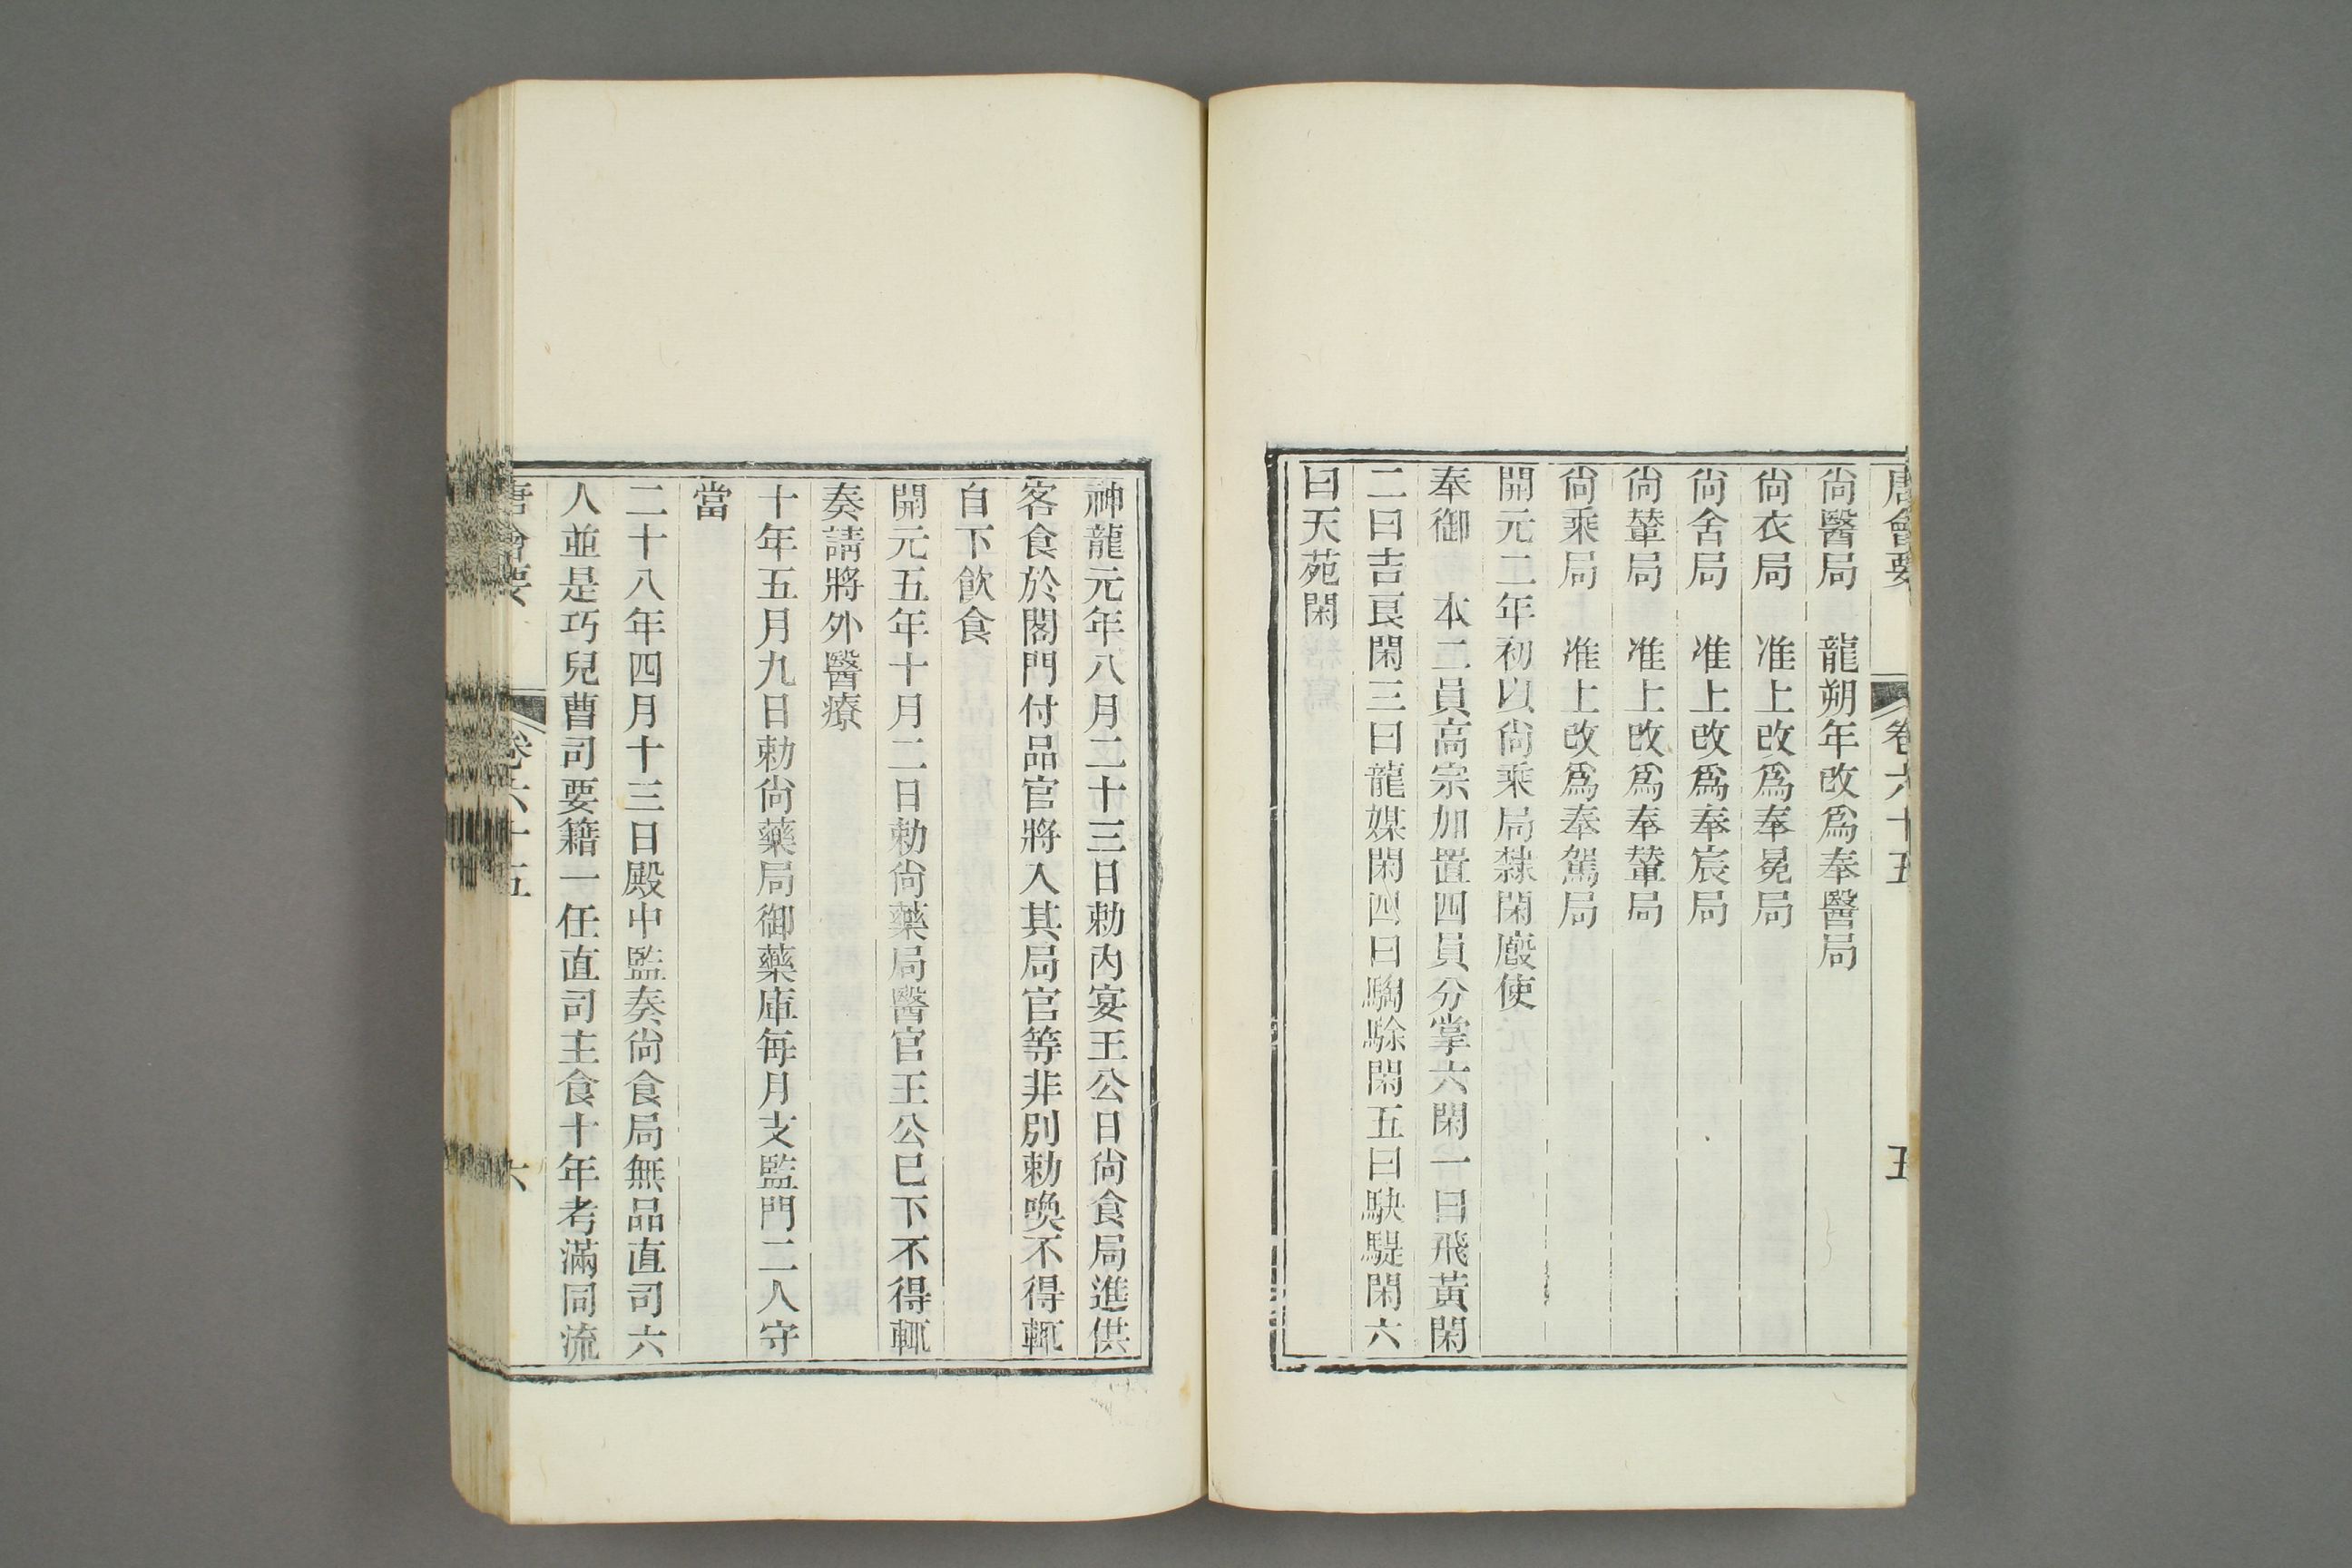 唐會要 卷六十五 五
尙醫局 龍朔年改爲奉醫局
尙衣局 准上改爲奉冕局
尙舍局 准上改爲奉宸局
尙輦局 准上改爲奉輦局
尙乘局 准上改爲奉駕局
開元二年初以尙乘局隸閑廄使
奉御 本二員高宗加置四員分掌六閑一曰飛黃閑
二曰吉良閑三曰龍媒閑四曰騊駼閑五曰駃騠閑六
曰天苑閑
神龍元年八月二十三日勅內宴王公日尙食局進供
客食於閣門付品官將入其局官等非別勅喚不得輒
自下飮食
開元五年十月二日勅尙藥局醫官王公已下不得輒
奏請將外醫療
十年五月九日勅尙藥局御藥庫每月支監門二人守
當
二十八年四月十三日殿中監奏尙食局無品直司六
人並是巧兒曹司要籍一任直司主食十年考滿同流
唐會要 卷六十五 六